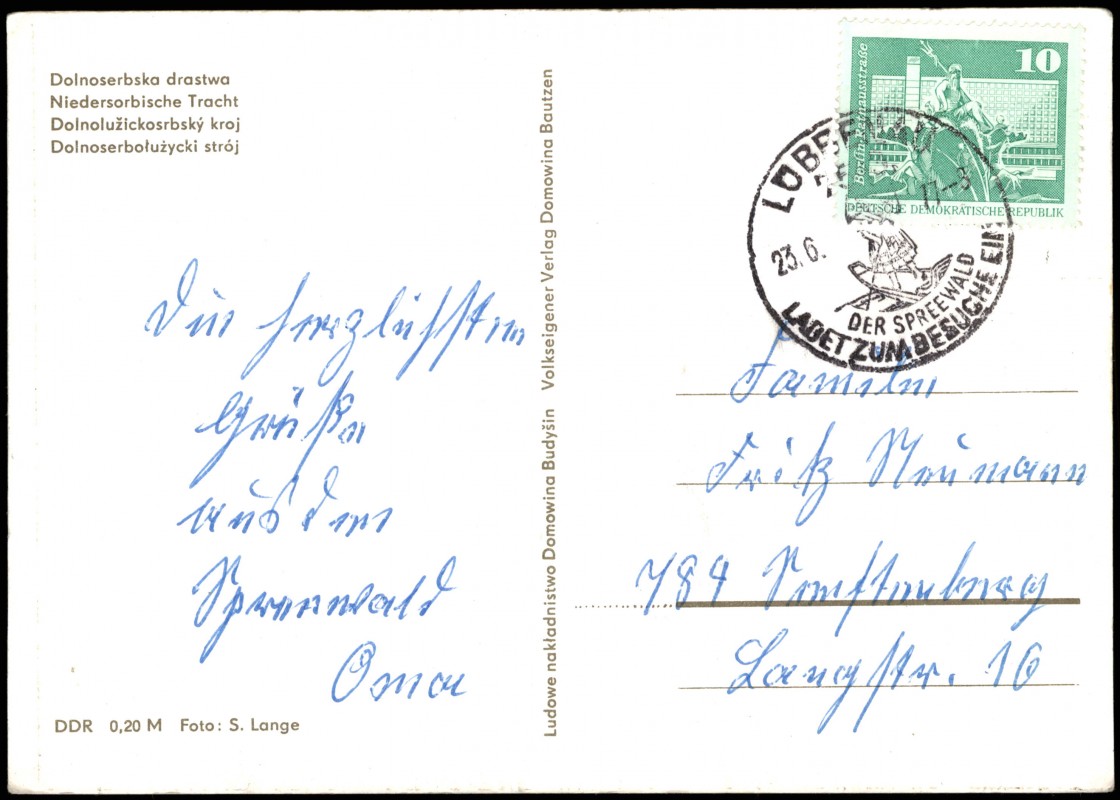 Dolnoserbska drastwa
Niedersorbische Tracht
Dolnolužickosrbský kroj
Dolnoserbołużycki strój
Die herzlichsten
Grüße
aus dem
Spreewald
Oma
DDR 0,20 M Foto: S. Lange
Ludowe nakładnistwo Domowina Budyšin Volkseigener Verlag Domowina Bautzen
10
Berlin-Rathausstraße
DEUTSCHE DEMOKRATISCHE REPUBLIK
LÜBBENAU
23.6.
DER SPREEWALD
LADET ZUM BESUCHE EIN
Familie
Fritz Neumann
784 Senftenberg
Langstr. 16